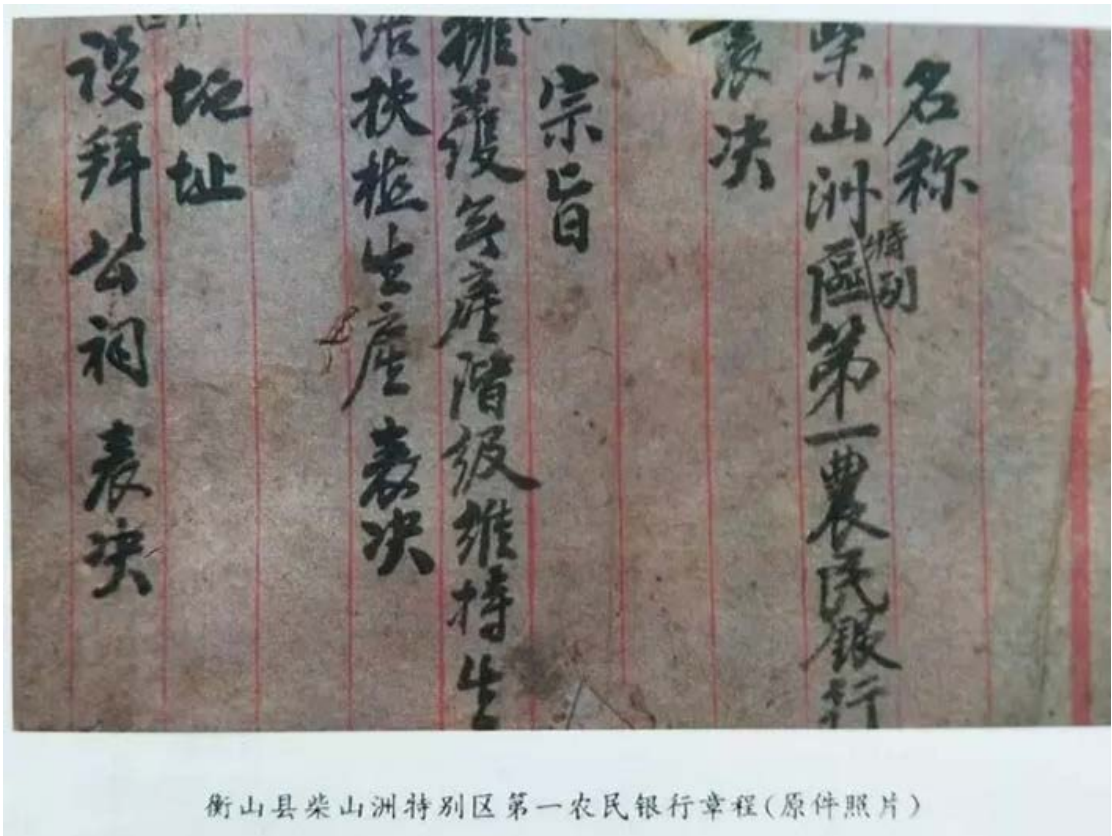 名称
柴山洲特别區第一農民銀行
表决
宗旨
擁護無產階級維持生
活扶植生產 表决
地址
设拜公祠 表决
衡山县柴山洲特别区第一农民银行章程(原件照片)